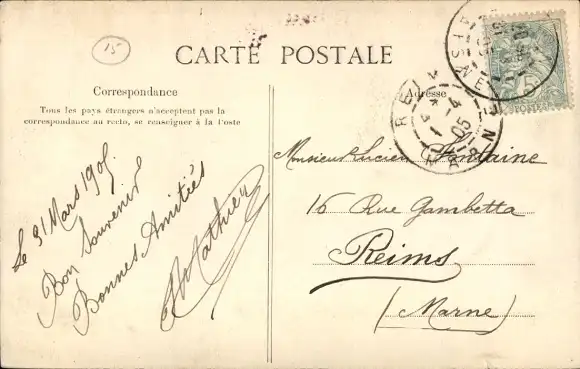 15
CARTE POSTALE
Correspondance
Tous les pays étrangers n'acceptent pas la
correspondance au recto, se renseigner à la Poste
Le 31 Mars 1905
Bon Souvenir
Bonnes Amitiés
Mathieu
Adresse
REIMS
4
05
MARNE
POSTES
Monsieur Lucien Fontaine
16 Rue Gambetta
Reims
(Marne)